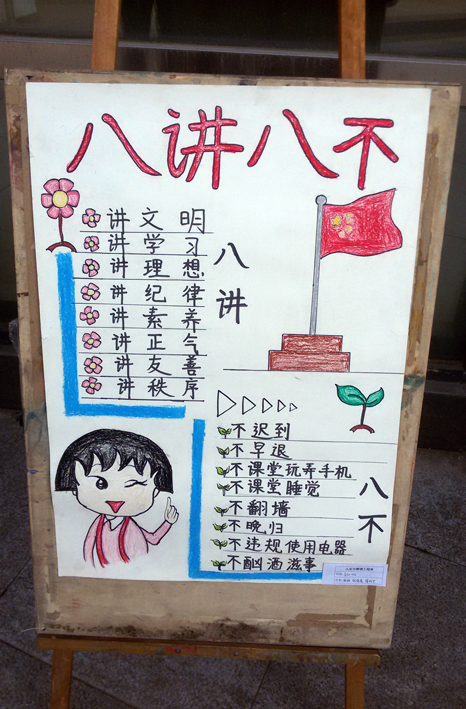 八讲八不
讲文明
讲学习
讲理想
讲纪律
讲素养
讲正气
讲友善
讲秩序
八讲
不迟到
不早退
不课堂玩弄手机
不课堂睡觉
不翻墙
不晚归
不违规使用电器
不酗酒滋事
八不